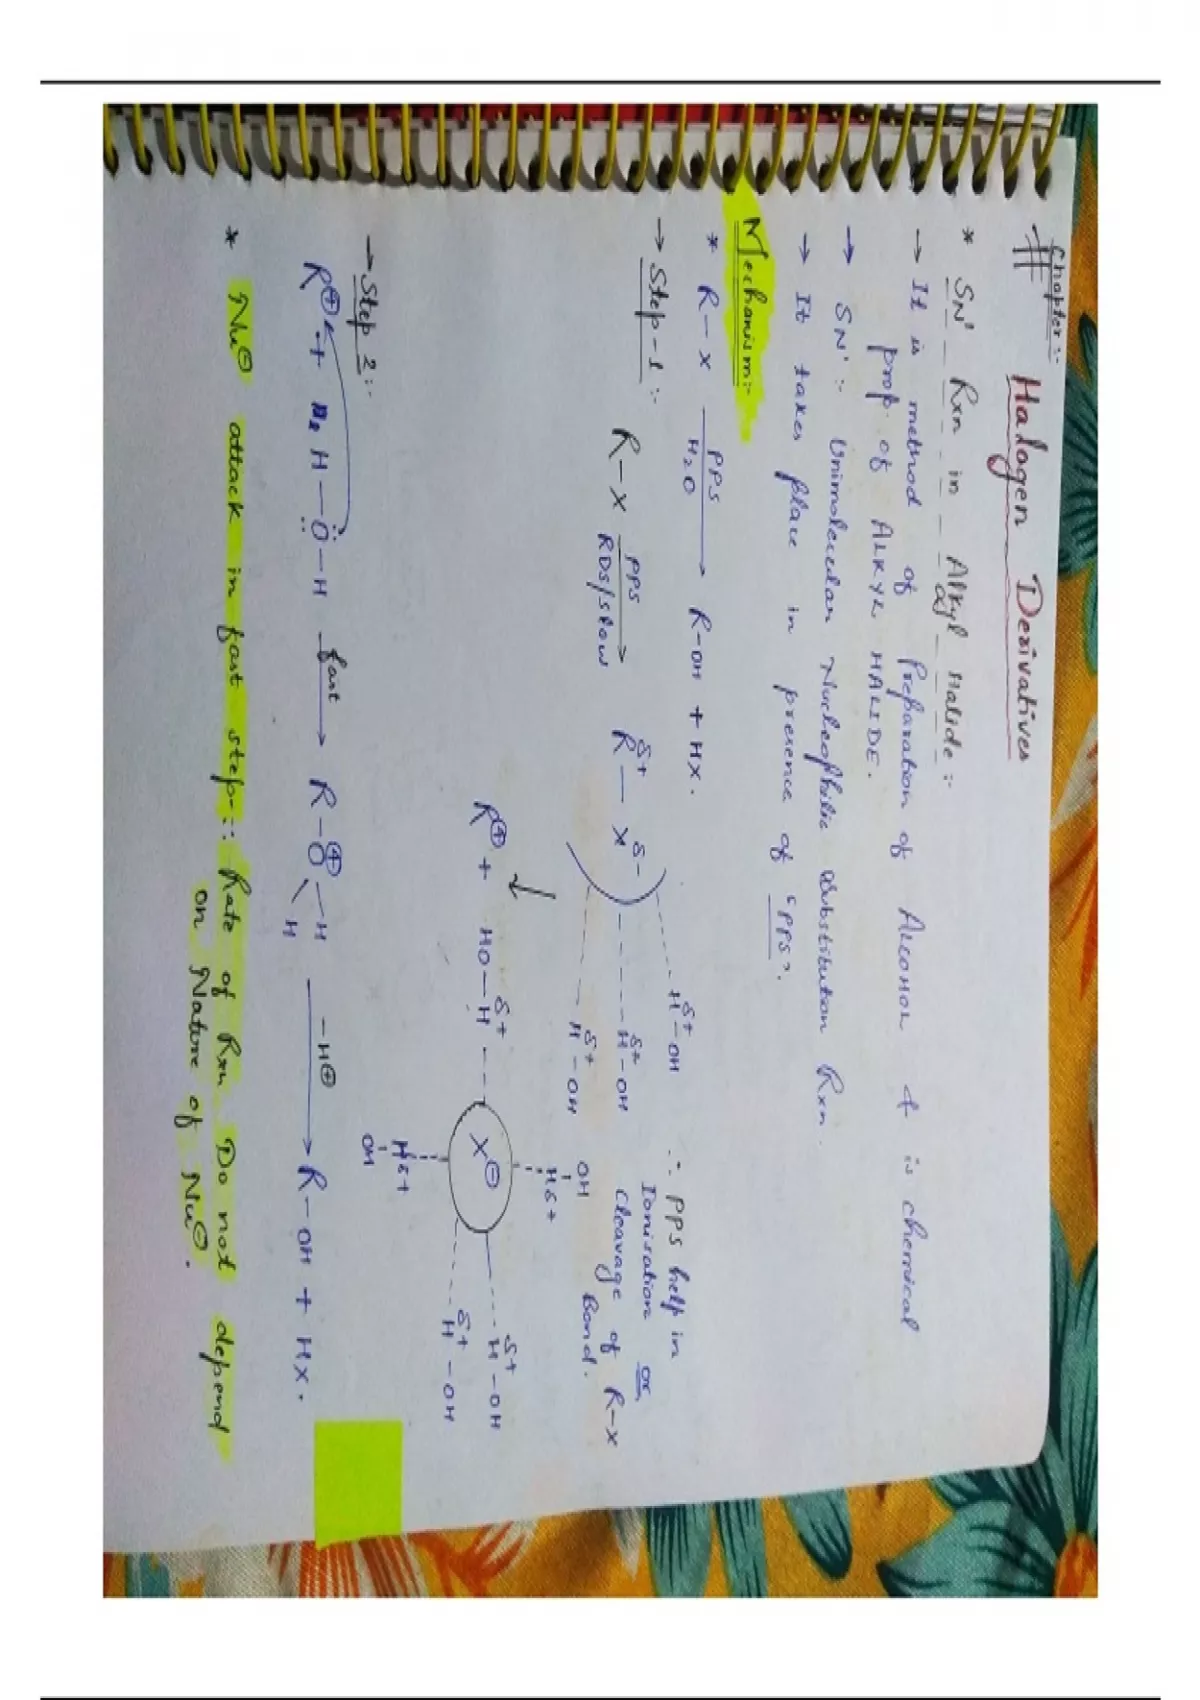 # Chapter:- Halogen Derivatives
* SN¹ Rxn in Alkyl Halide :-
→ It is method of Preparation of ALCOHOL & is chemical
prop. of ALKYL HALIDE.
→ SN¹ :- Unimolecular Nucleophilic Substitution Rxn.
→ It takes place in presence of "PPS".
Mechanism:-
* R-X PPS H₂O → R-OH + HX.
→ Step-1 :- R-X PPS RDS/slow → Rδ+ — Xδ-
δ+ H-OH
δ+ H-OH
δ+ H-OH
∴ PPS help in
Ionisation or
Cleavage of R-X
Bond.
↓
R⊕ + HO-H δ+ ---- X⊖
OH
Hδ+
Hδ+
OH
δ+ H-OH
δ+ H-OH
→ Step 2 :-
R⊕ + H-Ö-H fast → R-O⊕-H -H⊕ → R-OH + HX.
H
* Nu⊖ attack in fast step ∴ Rate of Rxn Do not depend
on Nature of Nu⊖.